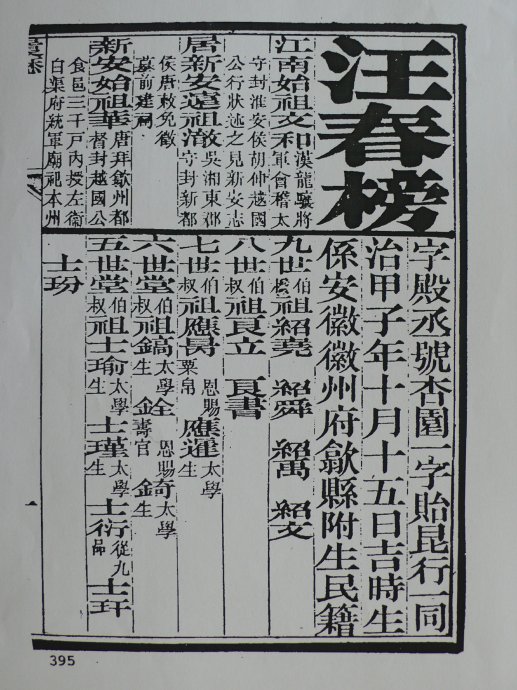 汪春榜
字殿丞號杏園一字貽昆行一同
治甲子年十月十五日吉時生
係安徽徽州府歙縣附生民籍
江南始祖文和漢龍驤將
軍會稽太
守封淮安侯胡仲越國
公行狀述之見新安志
居新安遠祖澈吳湘東郡
守封新都
侯唐敕免徵
墓前建祠
新安始祖華唐拜歙州都
督封越國公
食邑三千戶內授左衛
白渠府統軍廟祀本州
九世伯祖紹堯 紹舜 紹禹 紹文
八世伯叔祖良立 良書
七世伯叔祖應 恩賜粟帛 應暹太學生
六世堂伯叔祖鎬太學生 銓恩賜壽官 錡太學生
五世堂伯叔祖士瑜太學生 士瑾太學生 士衍從九品 士玕
士玢
395